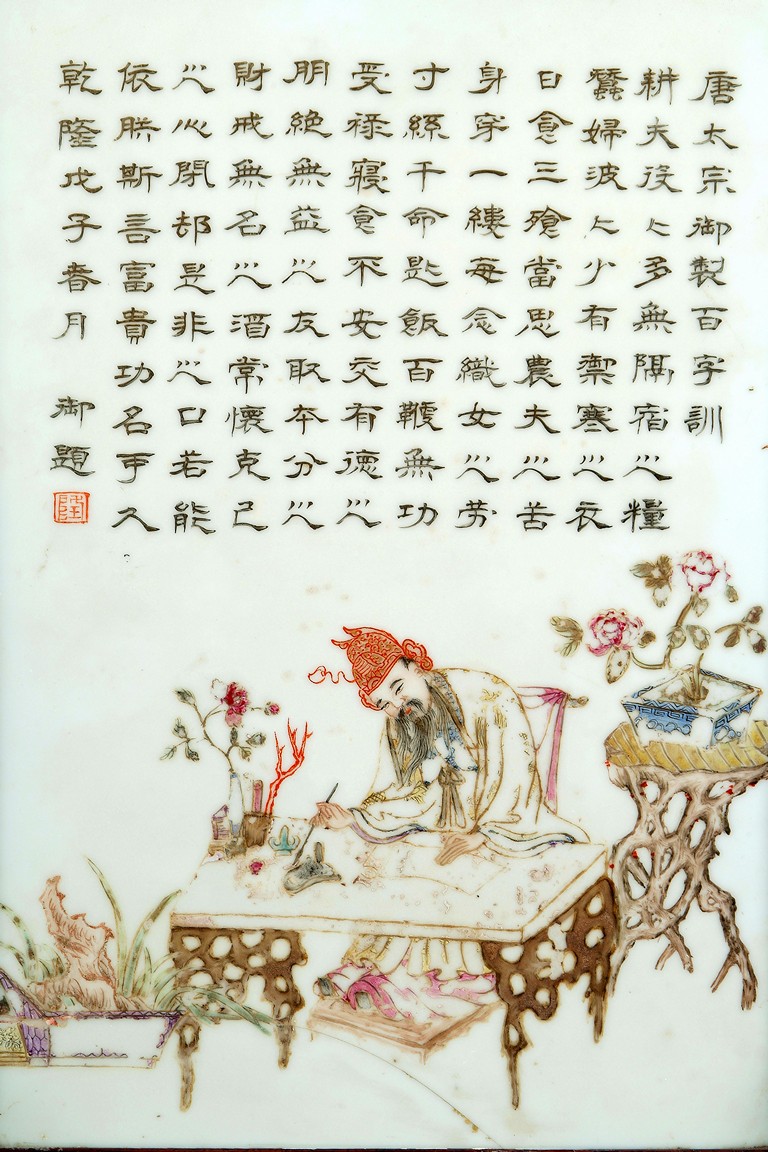 唐太宗御製百字訓
耕夫役々多無隔宿之糧
蠶婦波々少有禦寒之衣
日食三飱當思農夫之苦
身穿一縷每念織女之劳
寸絲千命匙飯百鞭無功
受祿寢食不安交有德之
朋絕無益之友取本分之
財戒無名之酒常懷克己
之心閉却是非之口若能
依朕斯言富貴功名可久
乾隆戊子春月 御題
隆